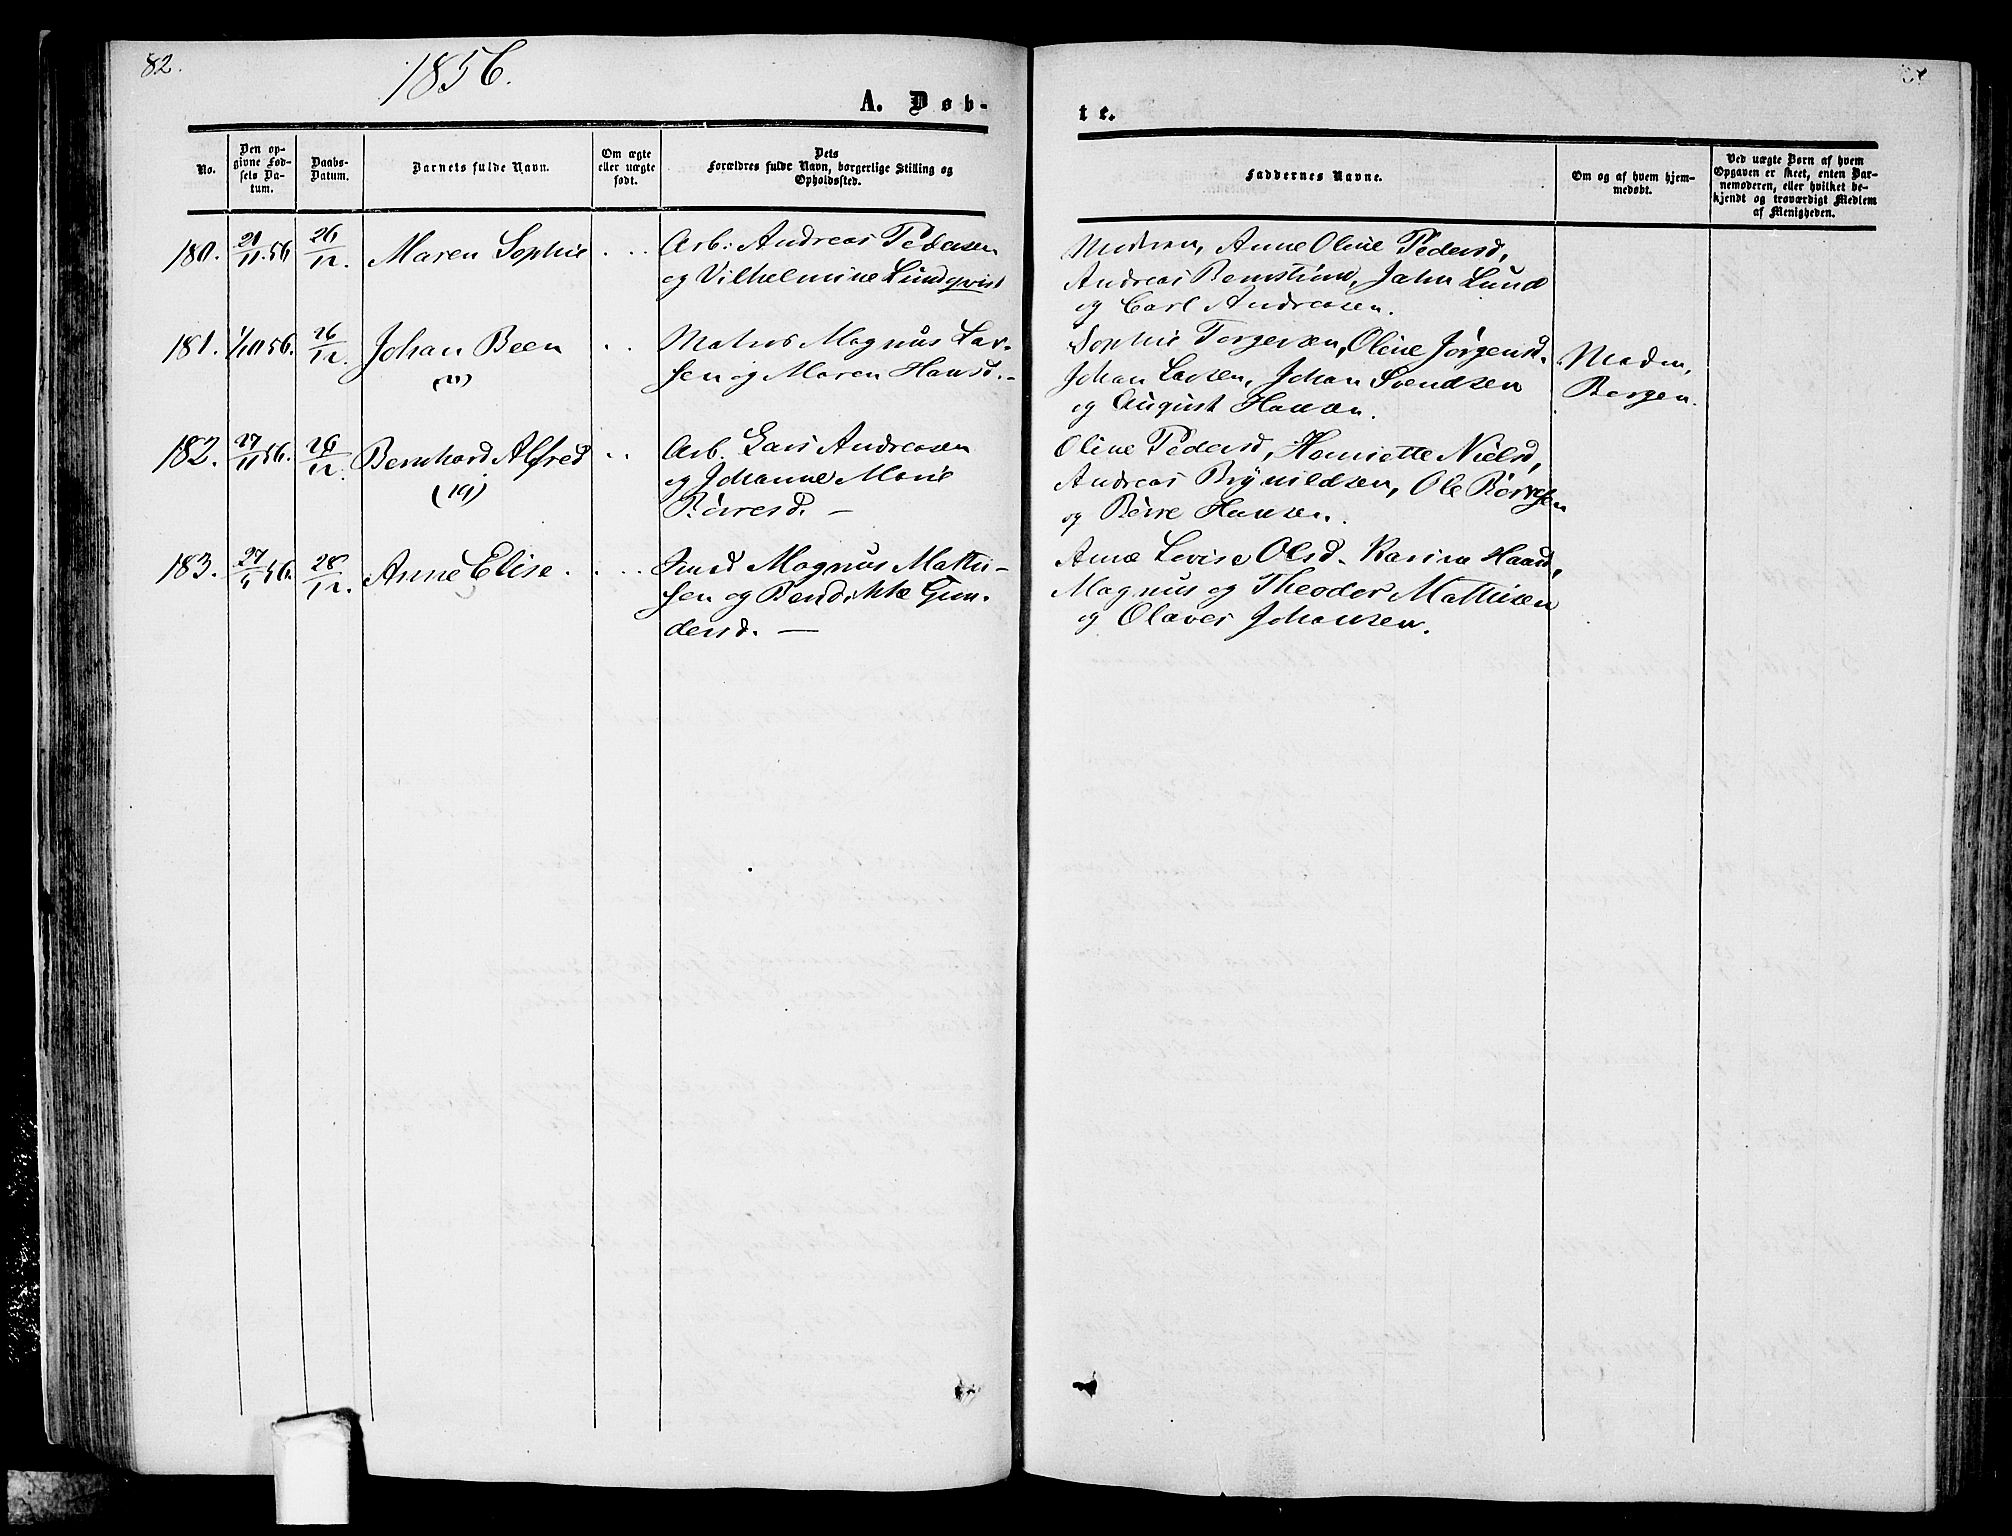 82.
1856.
A. Døb-
te.
No.
Den op-
givne Fød-
sels Da-
tum.
Daabs-
Datum.
Barnets fulde Navn.
Om ægte
eller uægte
født.
Dets
Forældres fulde Navn, borgerlige Stilling og
Opholdssted.
Faddernes Navne.
Om og af hvem hjem-
medøbt.
Ved uægte Børn af hvem
Opgaven er skeet, enten Bar-
nemoderen, eller hvilket be-
kjendt og troværdigt Medlem
af Menigheden.
180. 21/11.56 26/12. Maren Sophie Arb: Andreas Pedersen
og Vilhelmine Lundqvist
Modren, Anne Oline Pedersd,
Andreas Lund
og Carl Andreasen.
181. 1/10 56. 26/12. Johan Been
(11)
Matros Magnus Lar-
sen og Maren Hansd. -
Sophie Torgersen, Oline Jørgensd.
Johan Larsen, Johan Svendsen
og August Hansen.
Bergen.
182. 27/11 56. 26/12. Bernhard Alfred
(19)
Arb. Lars Andreasen
og Johanne Marie
Börresd. -
Oline Pedersd, Henriette Nielsd,
Andreas Brynildsen, Ole Börresen
og Börre Hansen.
183. 56. 28/12. Anne Elise.
Smed Magnus Mathi-
sen og Bendikte Gun-
dersd. -
Anne Lovise Olsd. Karine
Magnus og Theodor Mathisen
og Olaves Johansen.